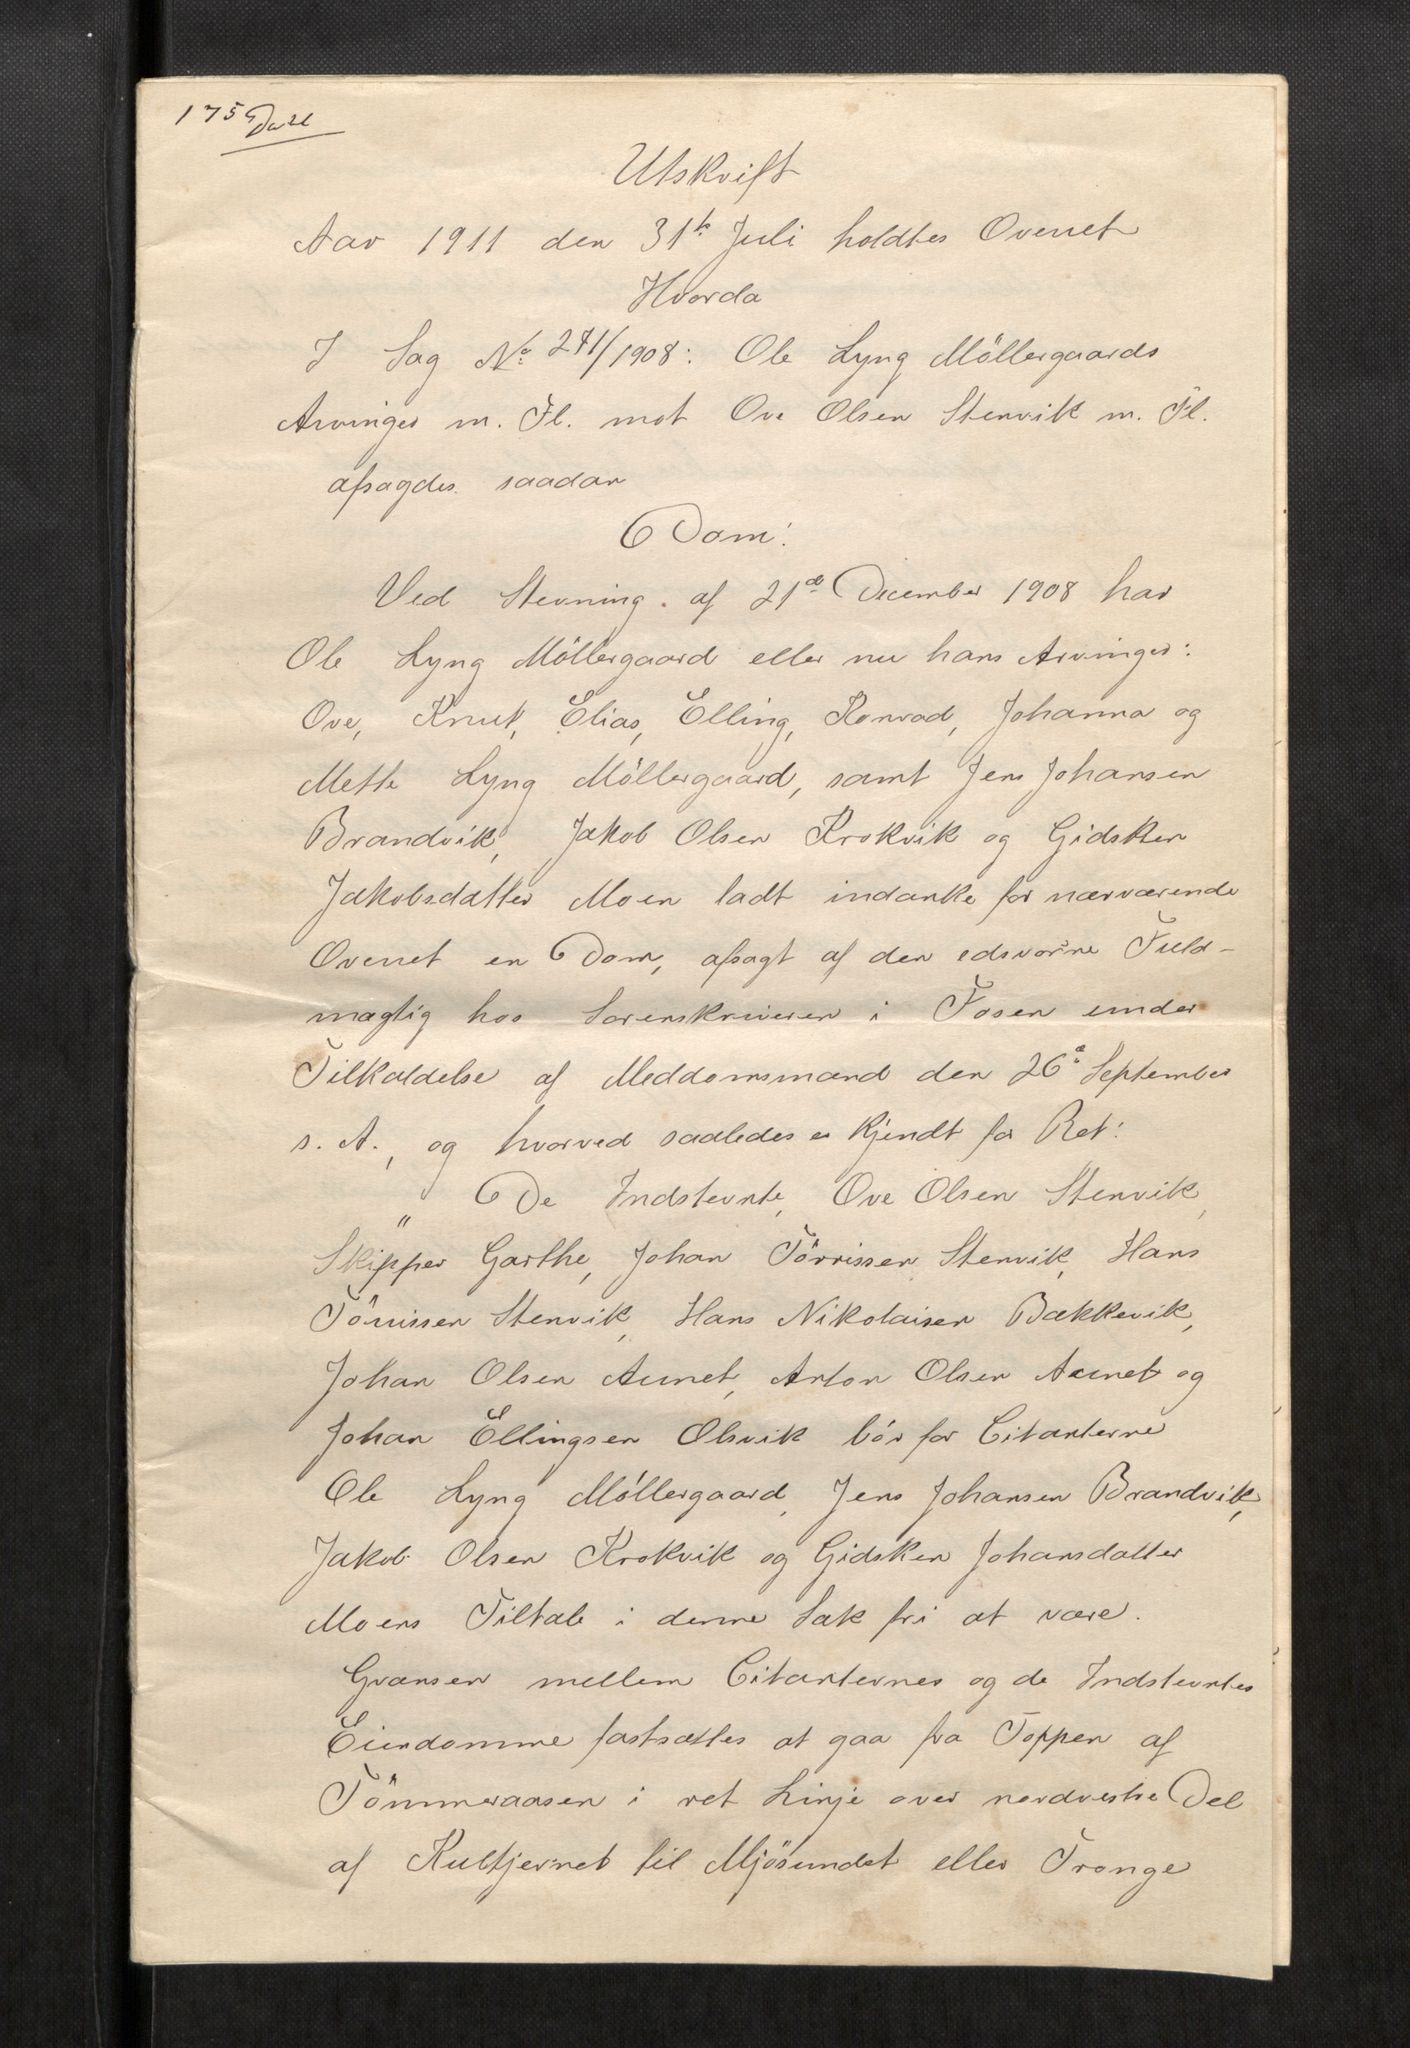 175 Dahl
Utskrift
Aar 1911 den 31te Juli holdtes Overret
Hvorda
I Sag No 271/1908: Ole Lyng Möllergaards
Arvinger m. Fl. mot Ove Olsen Stenvik m. Fl.
afsagdes saadan
Dom:
Ved Stevning af 21de December 1908 har
Ole Lyng Möllergaard eller nu hans Arvinger:
Ove, Knut, Elias, Elling, Konrad, Johanna og
Mette Lyng Möllergaard, samt Jens Johansen
Brandvik, Jakob Olsen Krokvik og Gidsken
Jakobsdatter Moen ladt indanke for nærværende
Overret en Dom, afsagt af den edsvorne Fuld-
mægtig hos Sorenskriveren i Fosen under
Tilkaldelse af Meddomsmænd den 26de September
s. A., og hvorved saaledes er kjendt for Ret:
" De Indstevnte, Ove Olsen Stenvik,
Skipper Garthe, Johan Törrissen Stenvik, Hans
Törrissen Stenvik, Hans Nikolaisen Bækkevik,
Johan Olsen Aunet, Anton Olsen Aunet og
Johan Ellingsen Olsvik bör for Citanterne
Ole Lyng Möllergaard, Jens Johansen Brandvik,
Jakob Olsen Krokvik og Gidsken Johansdatter
Moens Tiltale i denne Sak fri at være.
Grænsen mellem Citanternes og de Indstevntes
Eiendomme fastsættes at gaa fra Toppen af
Tömmeraasen i ret Linje over nordvestre Del
af Kultjernet til Mjösundet eller Trange